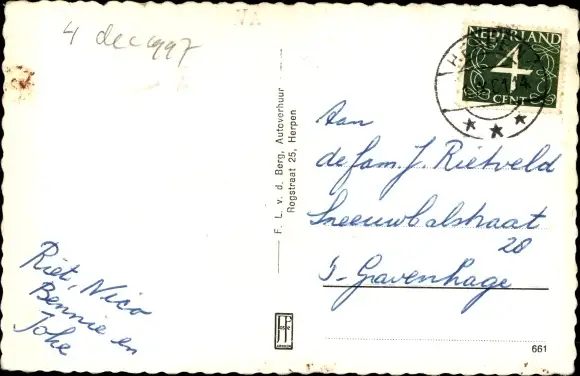 4 dec 1997
NEDERLAND
4
CENT
F. L. v. d. Berg, Autoverhuur
Rogstraat 25, Herpen
Aan
de fam. J. Rietveld
Sneeuwbalstraat
20
's-Gravenhage
Riet, Nico
Bennie en
Joke
661